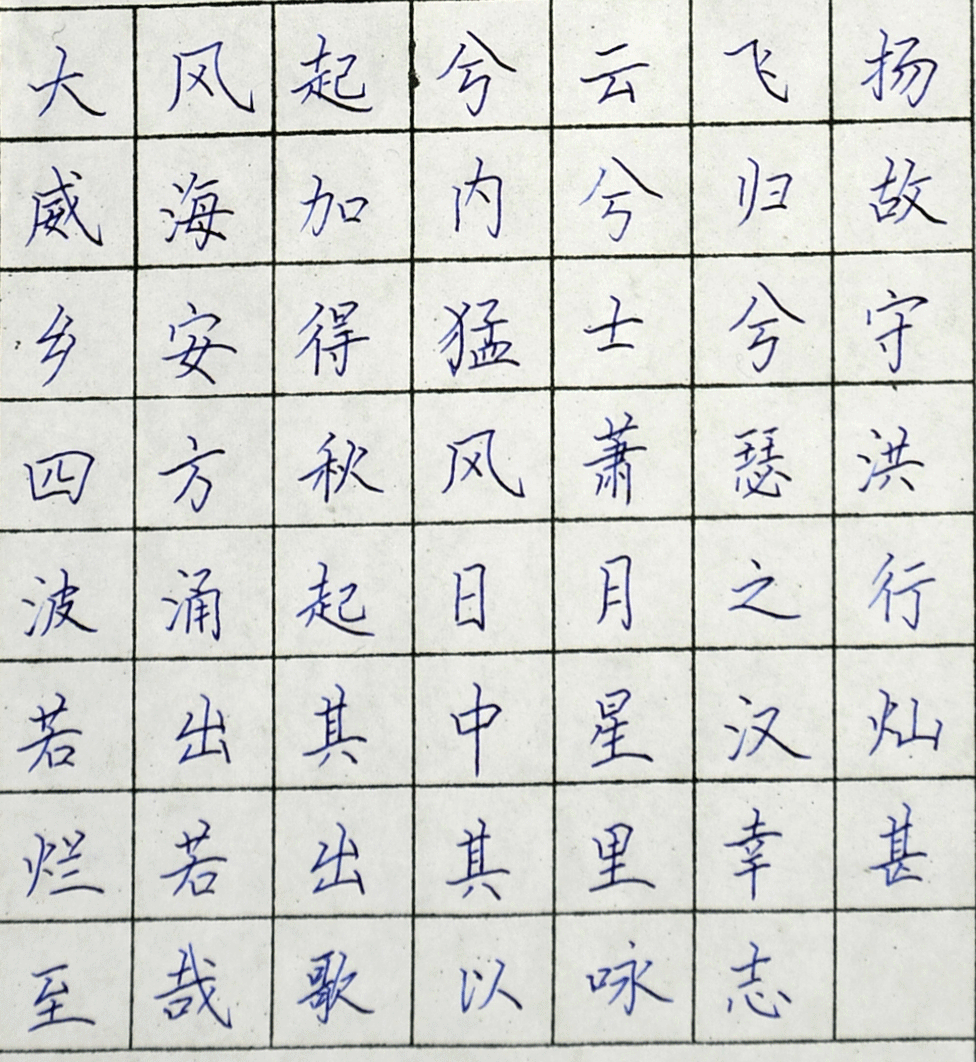 大风起兮云飞扬
威海加内兮归故
乡安得猛士兮守
四方秋风萧瑟洪
波涌起日月之行
若出其中星汉灿
烂若出其里幸甚
至哉歌以咏志